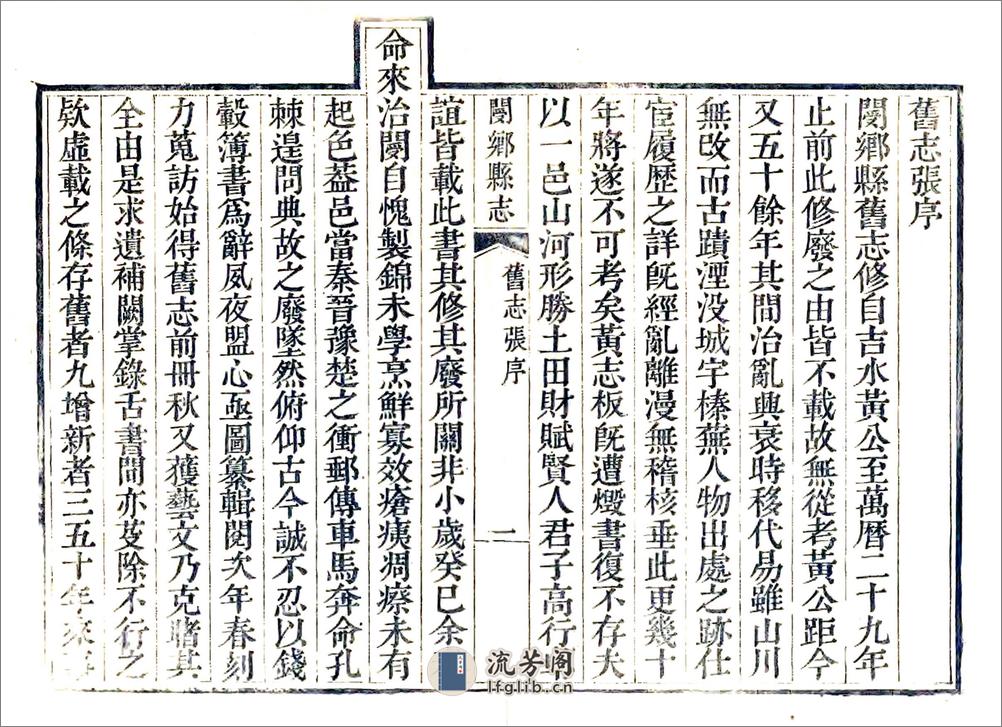 舊志張序
閿鄉縣舊志修自吉水黃公至萬曆二十九年
止前此修廢之由皆不載故無從考黃公距今
又五十餘年其間治亂興衰時移代易雖山川
無改而古蹟湮没城宇榛蕪人物出處之跡仕
宦履歷之詳旣經亂離漫無稽核垂此更幾十
年將遂不可考矣黃志板旣遭燬書復不存夫
以一邑山河形勝土田財賦賢人君子高行
閿鄉縣志
舊志張序
一
誼皆載此書其修其廢所關非小歲癸巳余
命來治閿自愧製錦未學烹鮮寡效瘡痍凋瘵未有
起色葢邑當秦晉豫楚之衝郵傳車馬奔命孔
棘遑問典故之廢墜然俯仰古今誠不忍以錢
穀簿書爲辭夙夜盟心亟圖纂輯閱次年春刻
力蒐訪始得舊志前冊秋又獲藝文乃克睹其
全由是求遺補闕掌錄舌書間亦芟除不行之
欵虛載之條存舊者九增新者三五十年來
流芳阁
lfglib.cn